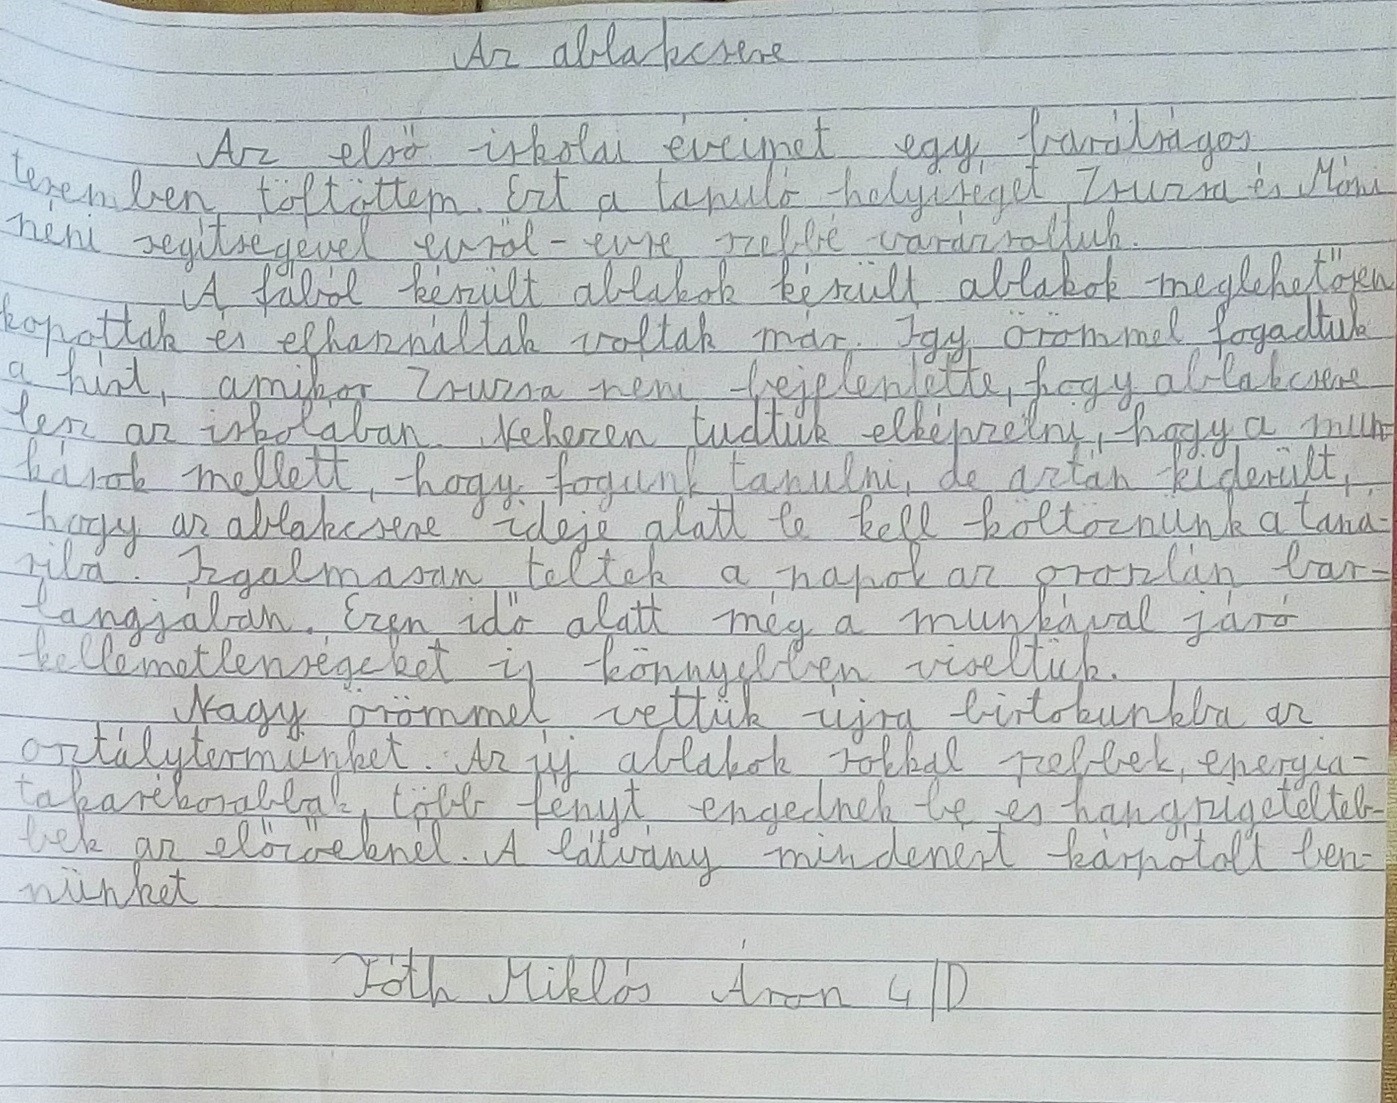 Az ablakcsere
Az első iskolai éveimet egy barátságos
teremben töltöttem. Ezt a tanuló helyiséget Zsuzsa és Móni
néni segítségével évről-évre szebbé varázsoltuk.
A fából készült ablakok készült ablakok meglehetősen
kopottak és elhasználtak voltak már. Így örömmel fogadtuk
a hírt, amikor Zsuzsa néni bejelentette, hogy ablakcsere
lesz az iskolában. Nehezen tudtuk elképzelni, hogy a mun-
kások mellett, hogy fogunk tanulni, de aztán kiderült,
hogy az ablakcsere ideje alatt le kell költöznünk a taná-
riba. Izgalmasan teltek a napok az oroszlán bar-
langjában. Ezen idő alatt még a munkával járó
kellemetlenségeket is könnyebben viseltük.
Nagy örömmel vettük újra birtokunkba az
osztálytermünket. Az új ablakok sokkal szebbek, energia-
takarékosabbak, több fényt engednek be és hangszigetelteb-
bek az előzőeknél. A látvány mindenért kárpótolt ben-
nünket
Tóth Miklós Áron 4/D